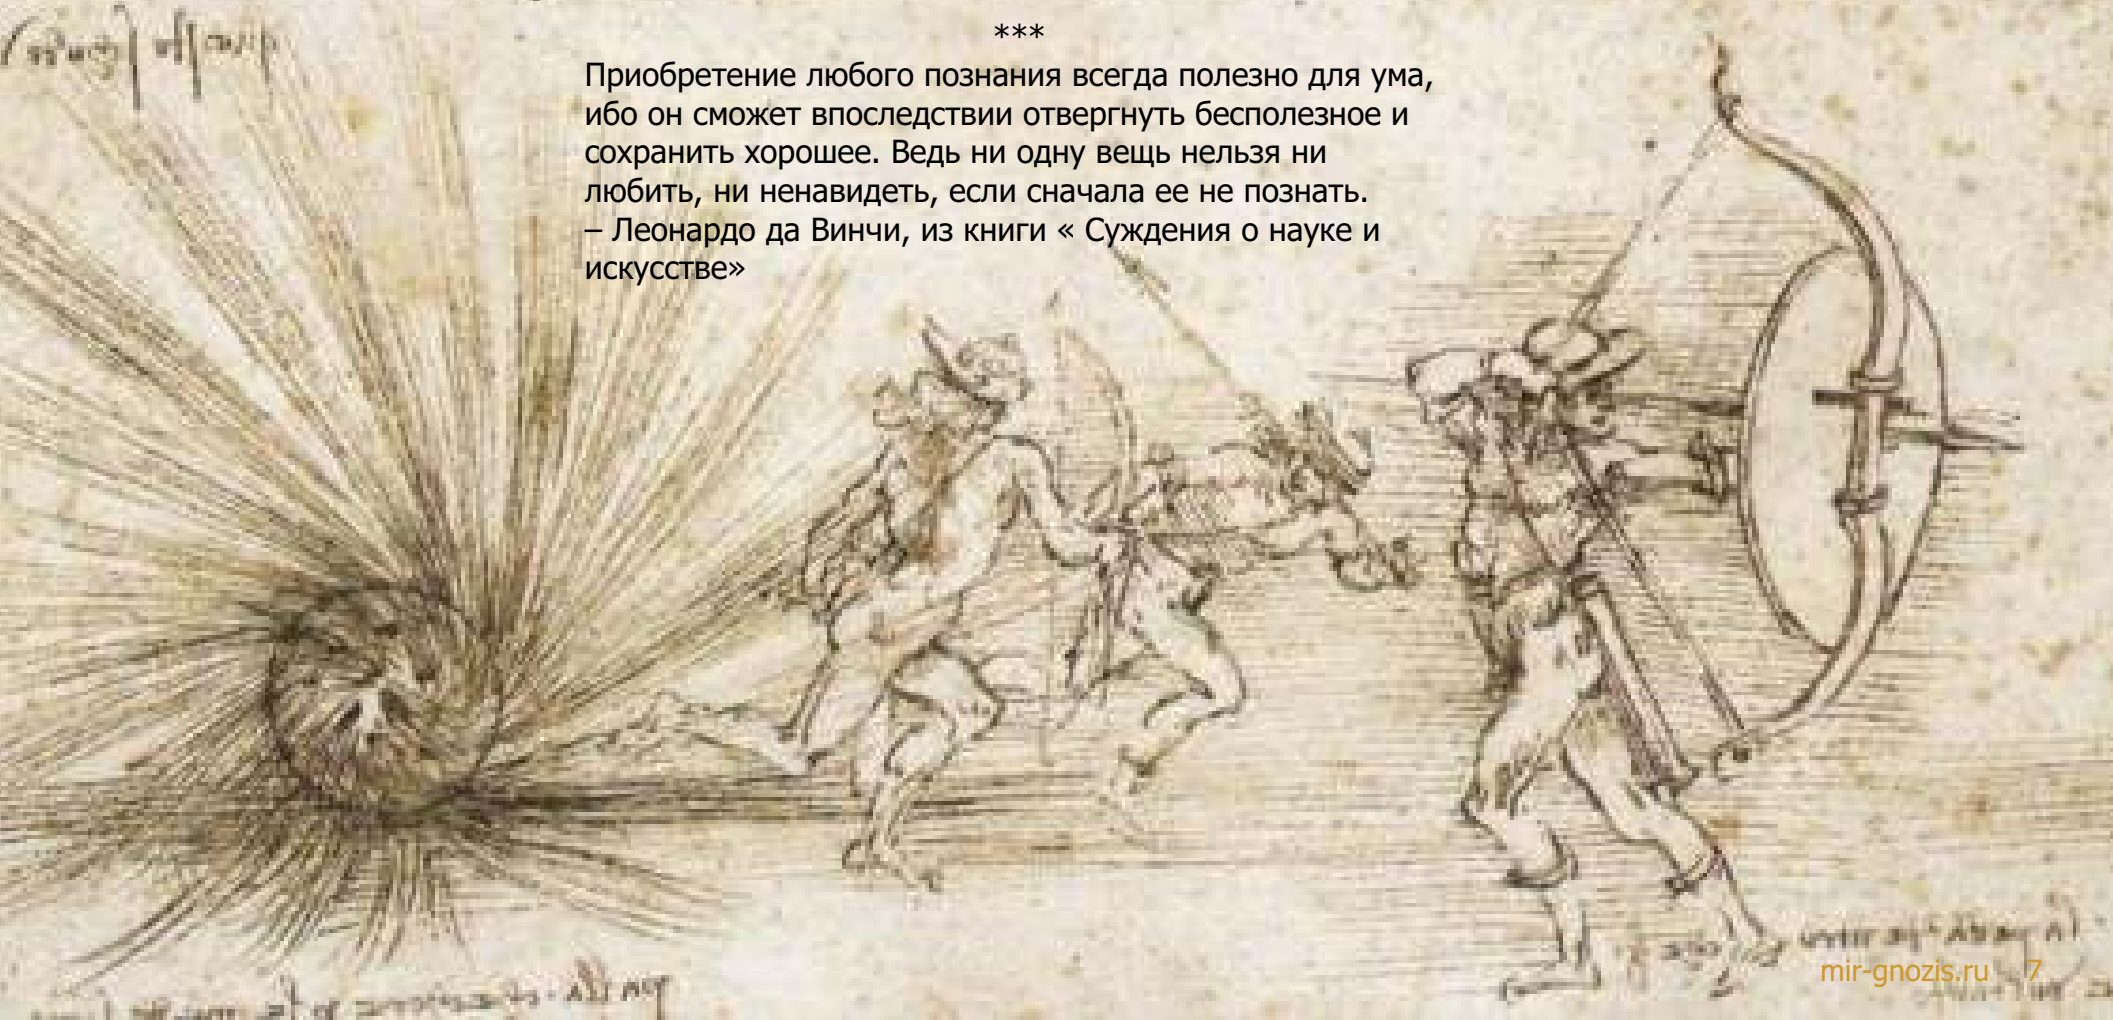 ***
Приобретение любого познания всегда полезно для ума,
ибо он сможет впоследствии отвергнуть бесполезное и
сохранить хорошее. Ведь ни одну вещь нельзя ни
любить, ни ненавидеть, если сначала ее не познать.
– Леонардо да Винчи, из книги « Суждения о науке и
искусстве»
mir-gnozis.ru 7